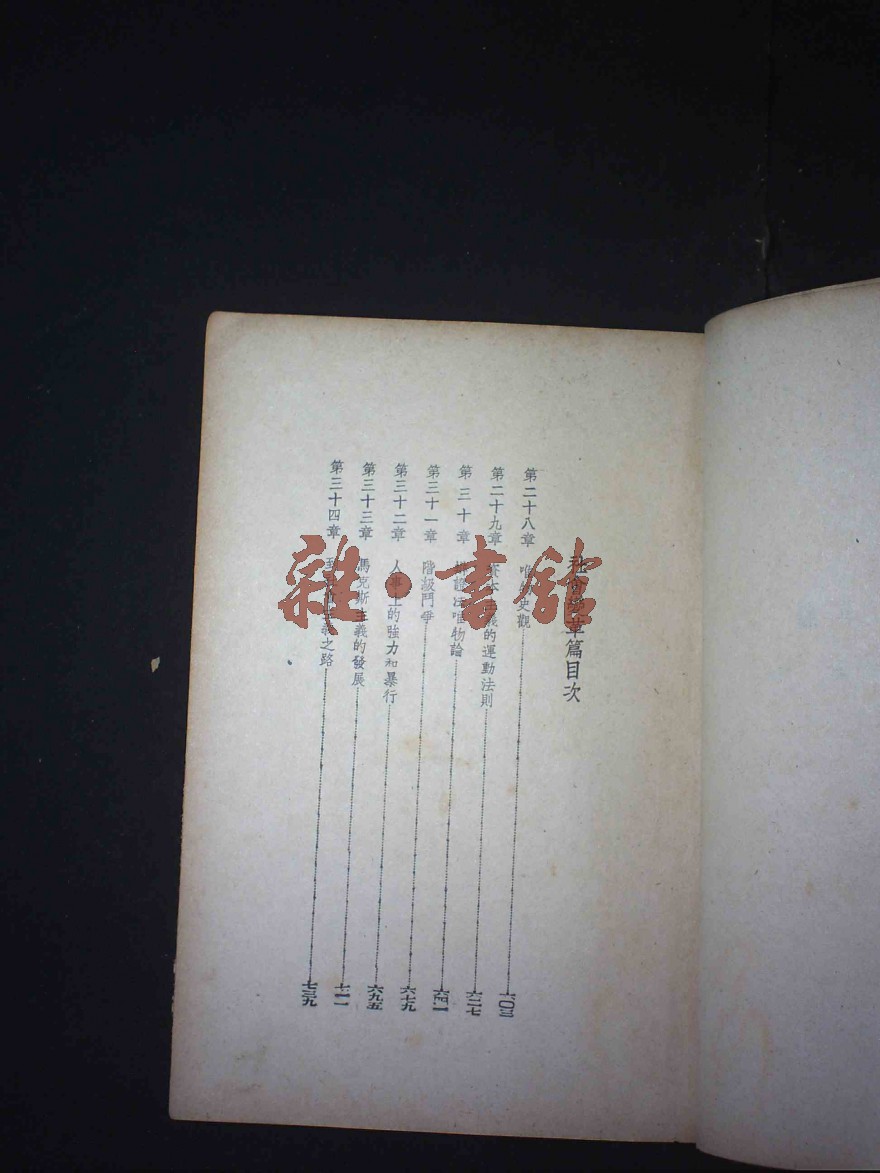 社會學章篇目次
第二十八章 唯物史觀 六〇三
第二十九章 資本主義的運動法則 六二七
第三十章 辯證法唯物論
第三十一章 階級鬥爭 六七九
第三十二章 人事上的強力和暴行 六九五
第三十三章 馬克斯主義的發展
第三十四章 主義之路 七三九
雜·書館